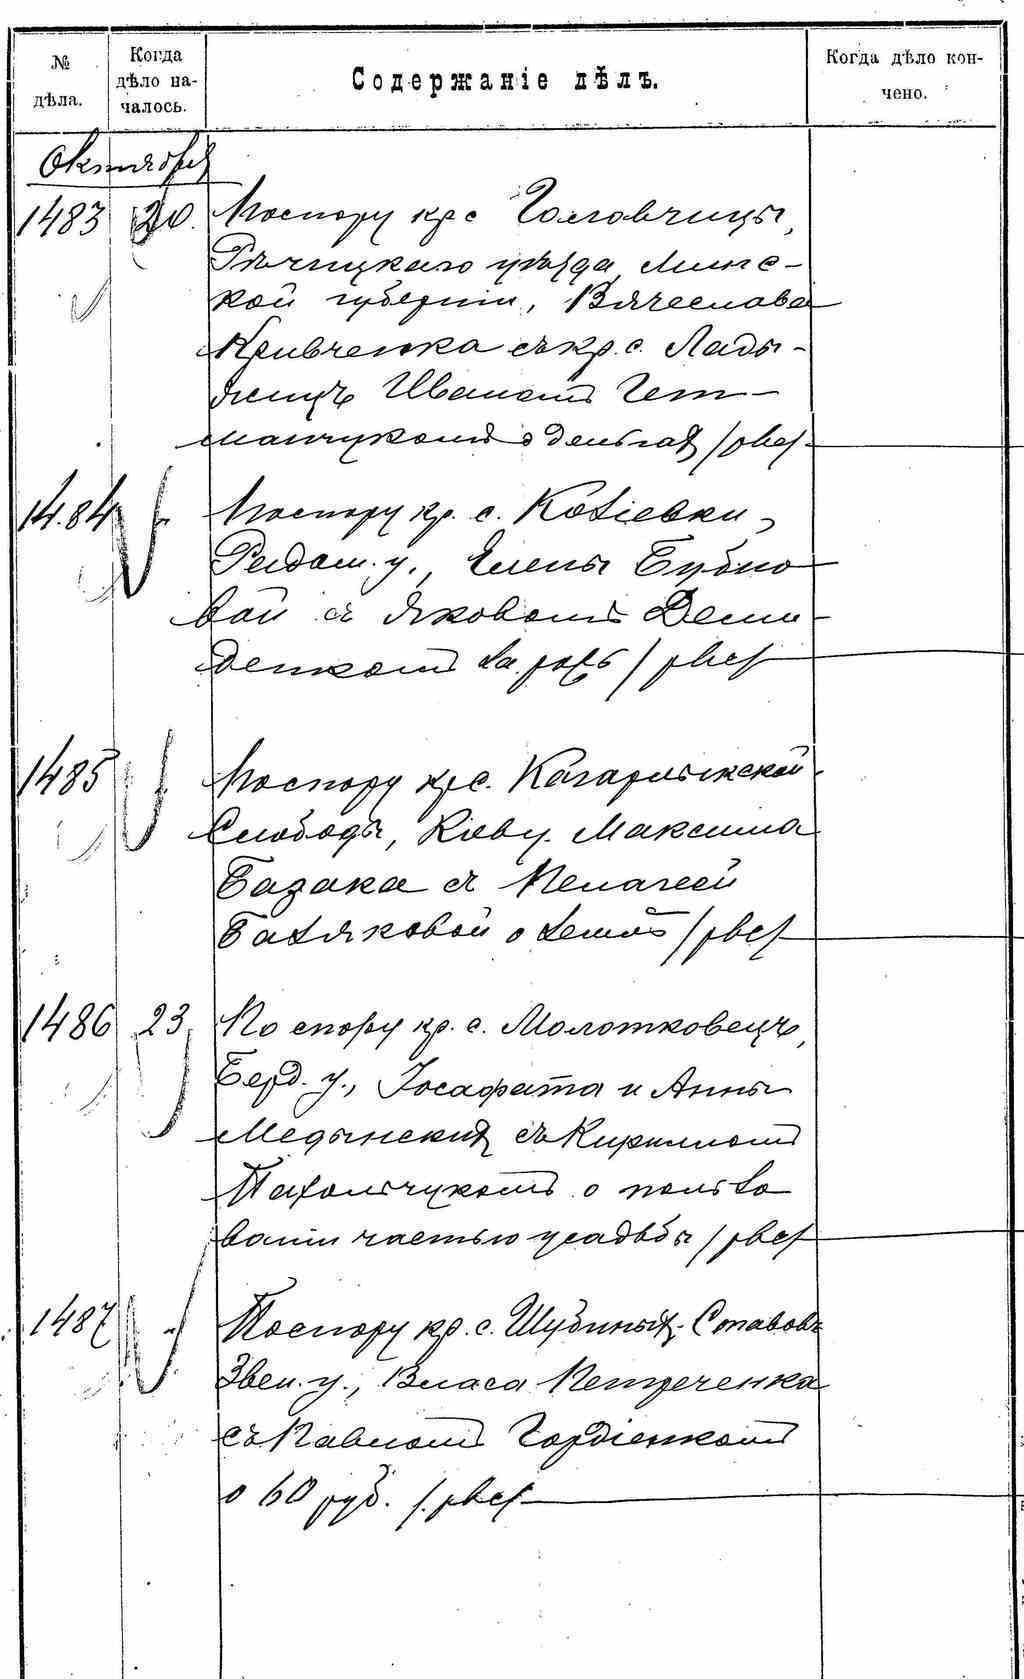 № дѣла.
Когда дѣло на-
чалось.
Содержаніе дѣлъ.
Когда дѣло кон-
чено.
Октября
1483 20. По спору кр. с. Головчицы,
Рѣчицкаго уѣзда, Минс-
кой губерніи, Вячеслава
Кривченка съ кр. с. Лады-
жицъ Иваномъ Гет-
манчукомъ о деньгах
1484 " По спору кр. с. Козіевки,
Радом. у., Елены Бубно
вой съ Яковомъ Деми-
денкомъ за рожь
1485 По спору кр. с. Кагарлыкской
Слободы, Кіев. у. Максима
Базака съ Пелагеей
Базяковой о землѣ
1486 23 По спору кр. с. Молотковецъ,
Берд. у., Іосафата и Анны
Медынских съ Кирилломъ
Пахольчукомъ о пользо
ваніи частью усадьбы
1487 " По спору кр. с. Шубиныхъ-Ставовъ
Звен. у., Власа Петреченка
съ Павломъ Гордіенкомъ
о 60 руб.